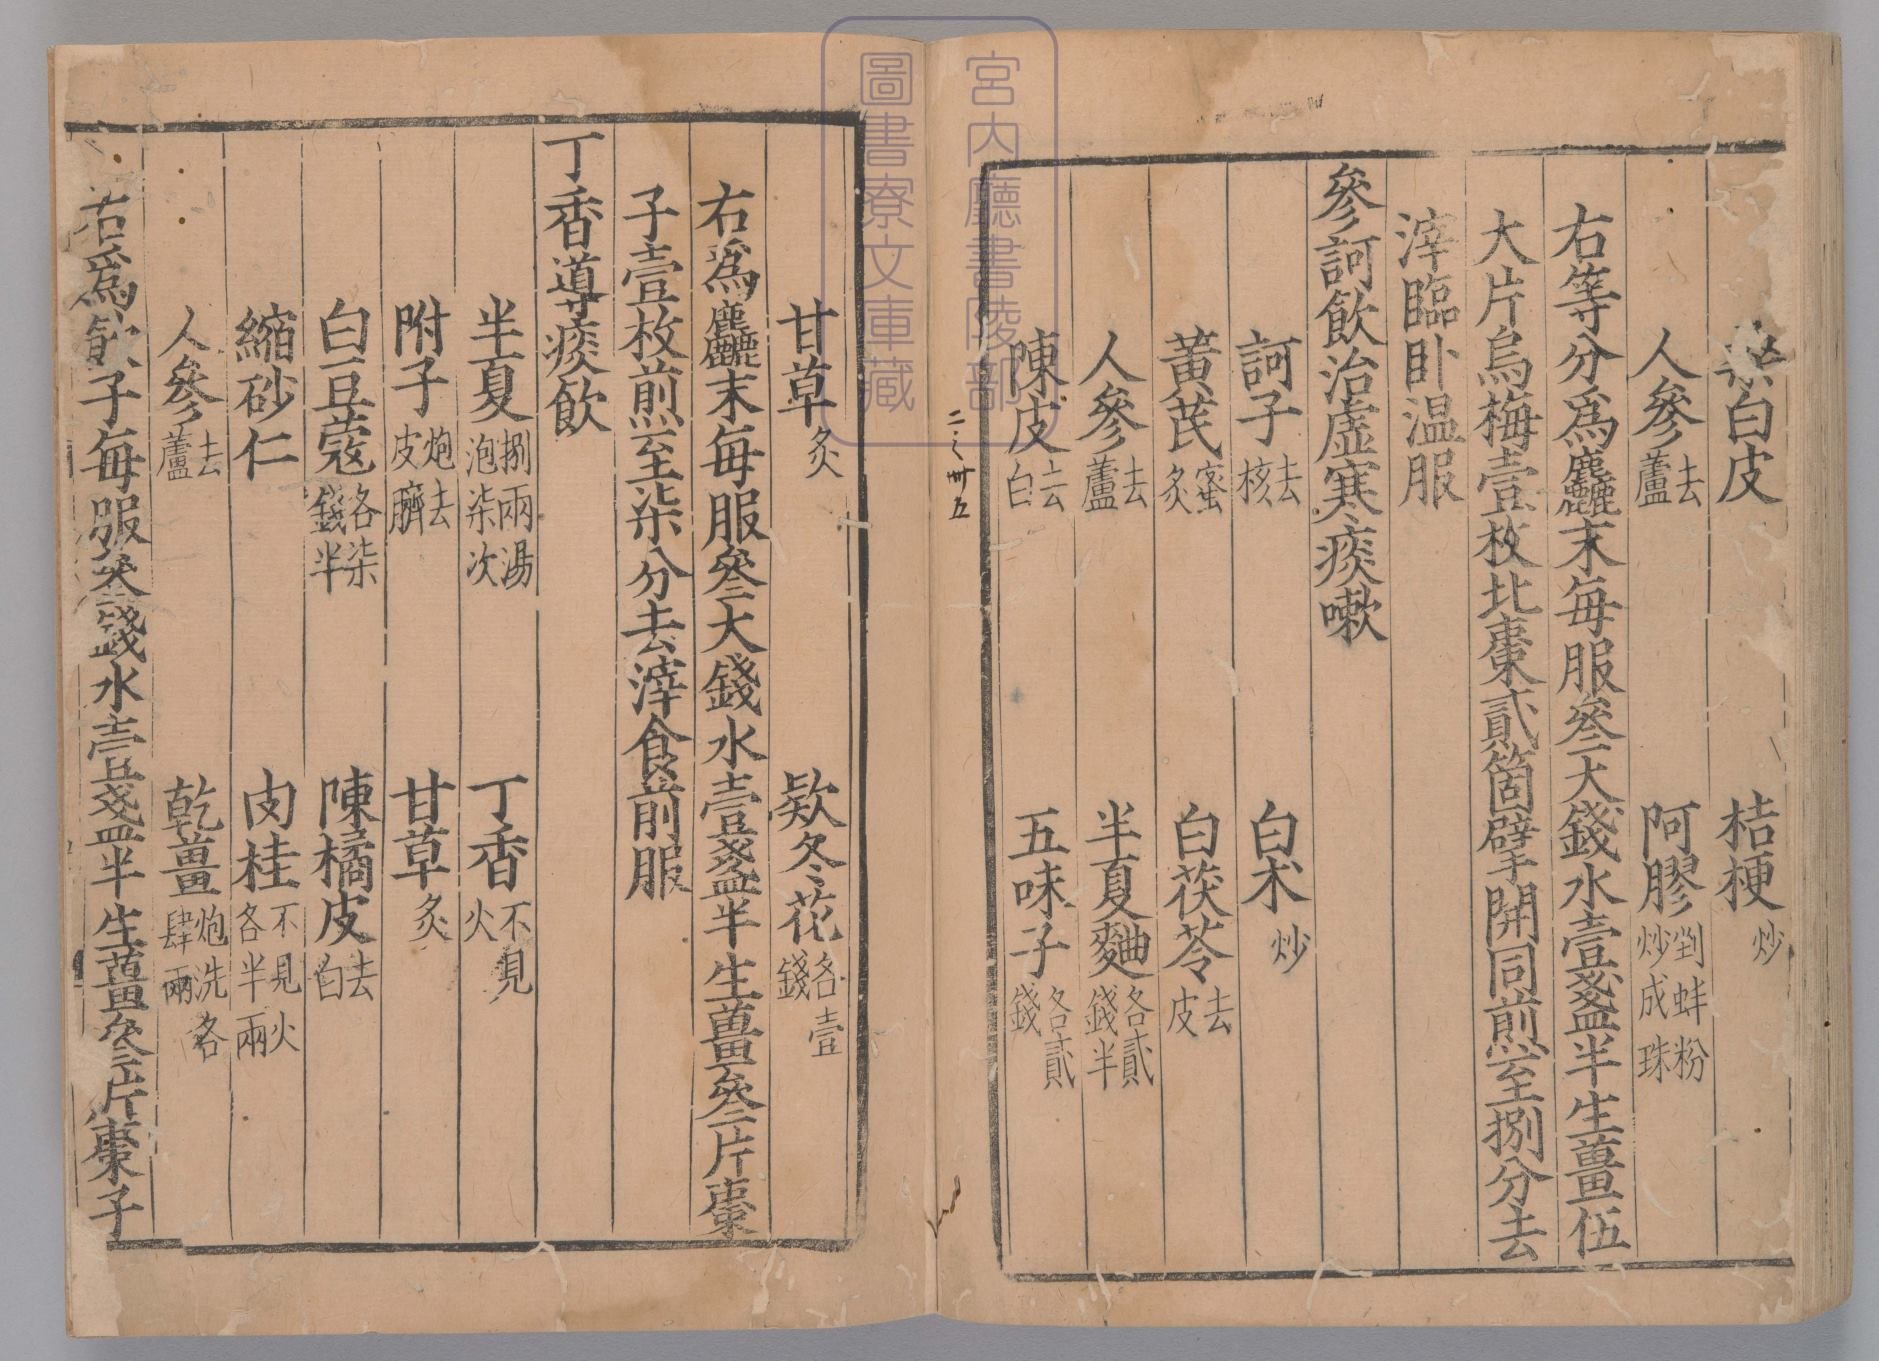 白皮　桔梗炒
人參去蘆　阿膠剉蚌粉炒成珠
右等分爲麤末每服叄大錢水壹盞半生薑伍
大片烏梅壹枚北棗貳箇擘開同煎至捌分去
滓臨卧温服
參訶飲治虛寒痰嗽
訶子去核　白朮炒
黄芪蜜炙　白茯苓去皮
人參去蘆　半夏麯各貳錢半
陳皮去白　五味子各貳錢
二之卅五
甘草炙　欵冬花各壹錢
右爲麤末每服叄大錢水壹盞半生薑叄片棗
子壹枚煎至柒分去滓食前服
丁香導痰飲
半夏捌兩湯泡柒次　丁香不見火
附子炮去皮臍　甘草炙
白豆蔻各柒錢半　陳橘皮去白
縮砂仁　肉桂不見火各半兩
人參去蘆　乾薑炮洗各肆兩
右爲飲子每服叄錢水壹盞半生薑叄片棗子
宮内廳書陵部
圖書寮文庫藏